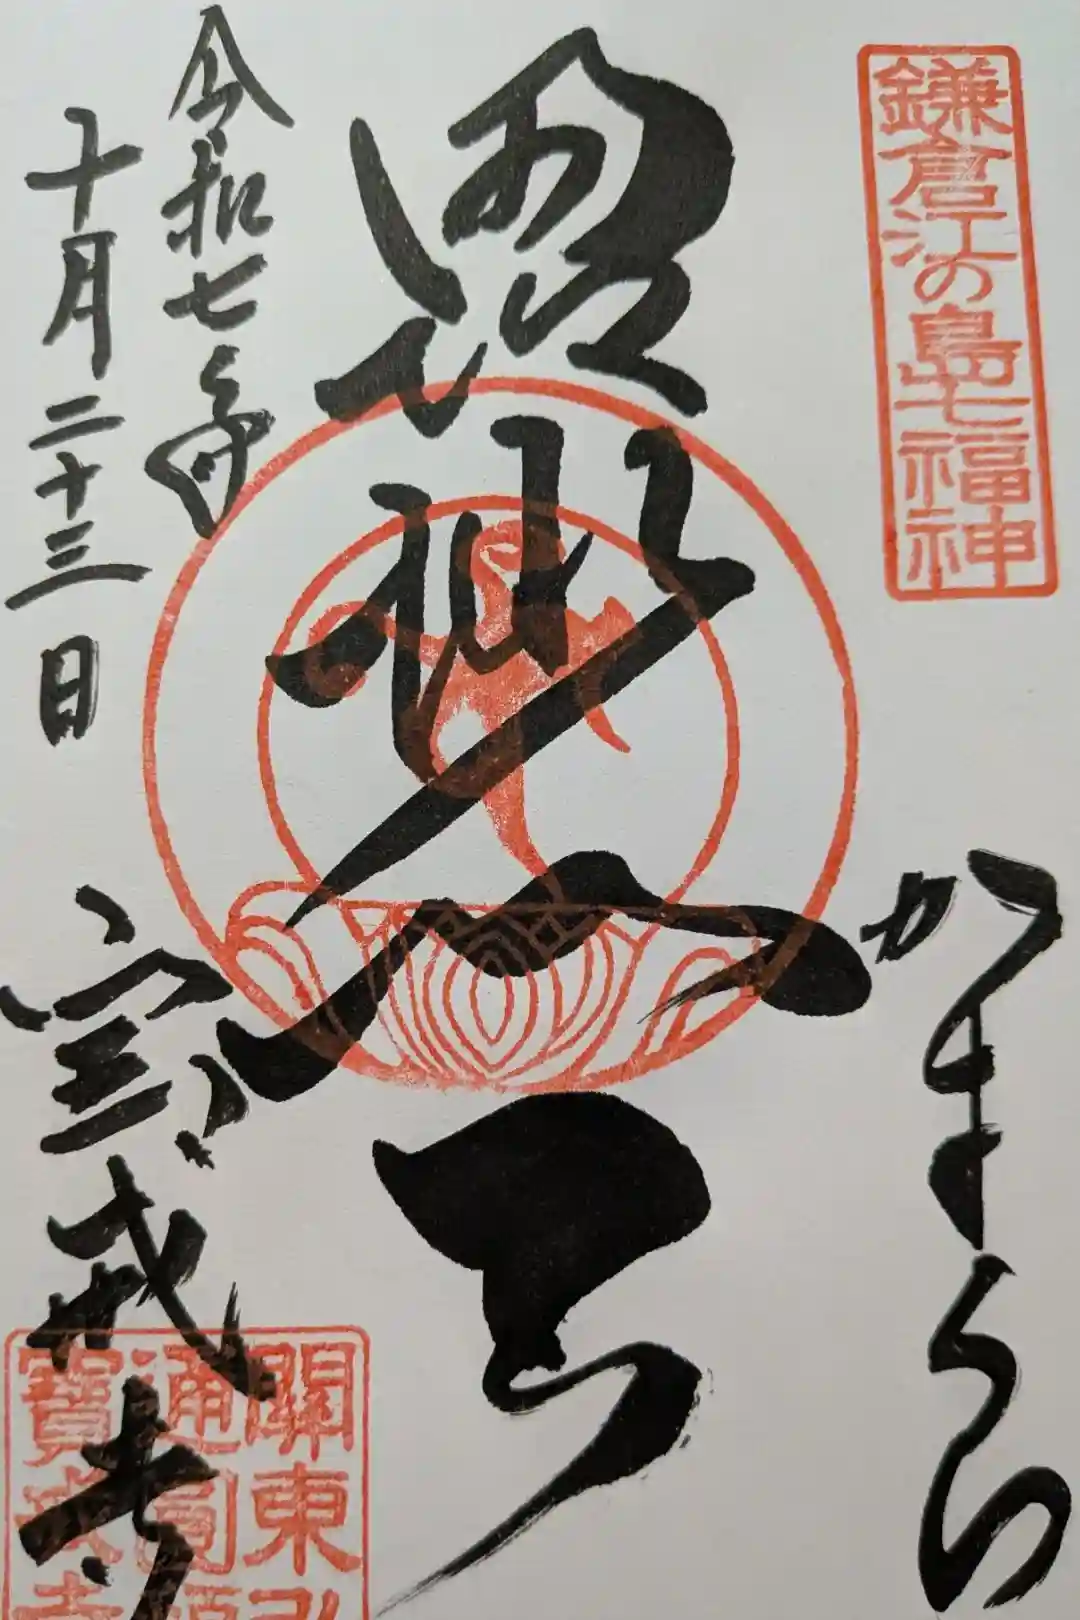 鎌倉江の島七福神
かまくら
毘沙門天
令和七年
十月二十三日
宝戒寺
關東
通圓
寶戒